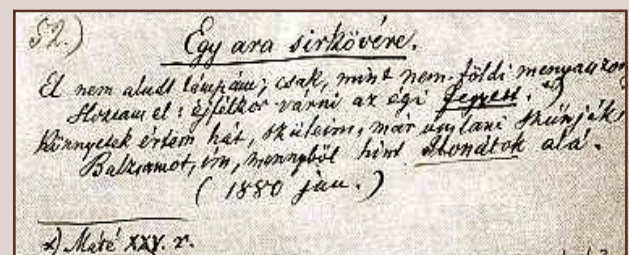 52.)
Egy ara sirkövére.
El nem aludt lámpám; csak, mint nem-földi menyasszony
Hoztam el: éjfélkor várni az égi Jegyest. *)
Könnyetek értem hát, szüleim, már omlani szünjék,
Balzsamot, im, mennyből hint Ilonátok alá.
(1880 jan.)
x) Máté XXV. r.